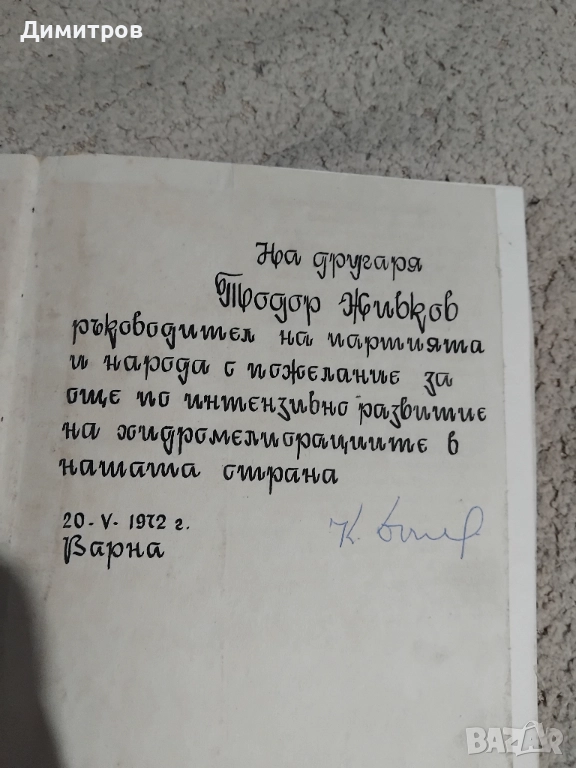 Димитров
На другаря
Тодор Живков
ръководител на партията
и народа с пожелание за
още по интензивно развитие
на хидромелиорациите в
нашата страна
20-V-1972 г.
Варна
BAZAR